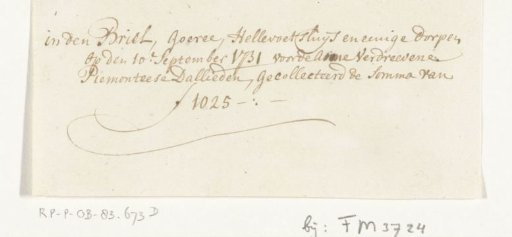 in den Briel, Goeree, Hellevoetsluys en eenige dorpen
Op den 10e September 1731 voor de Arme Verdreevene
Piemonteese Dallieden, Gecollecteerd de Somma van
ƒ 1025 -:-
RP-P-OB-83.673D
bij: FM 3724